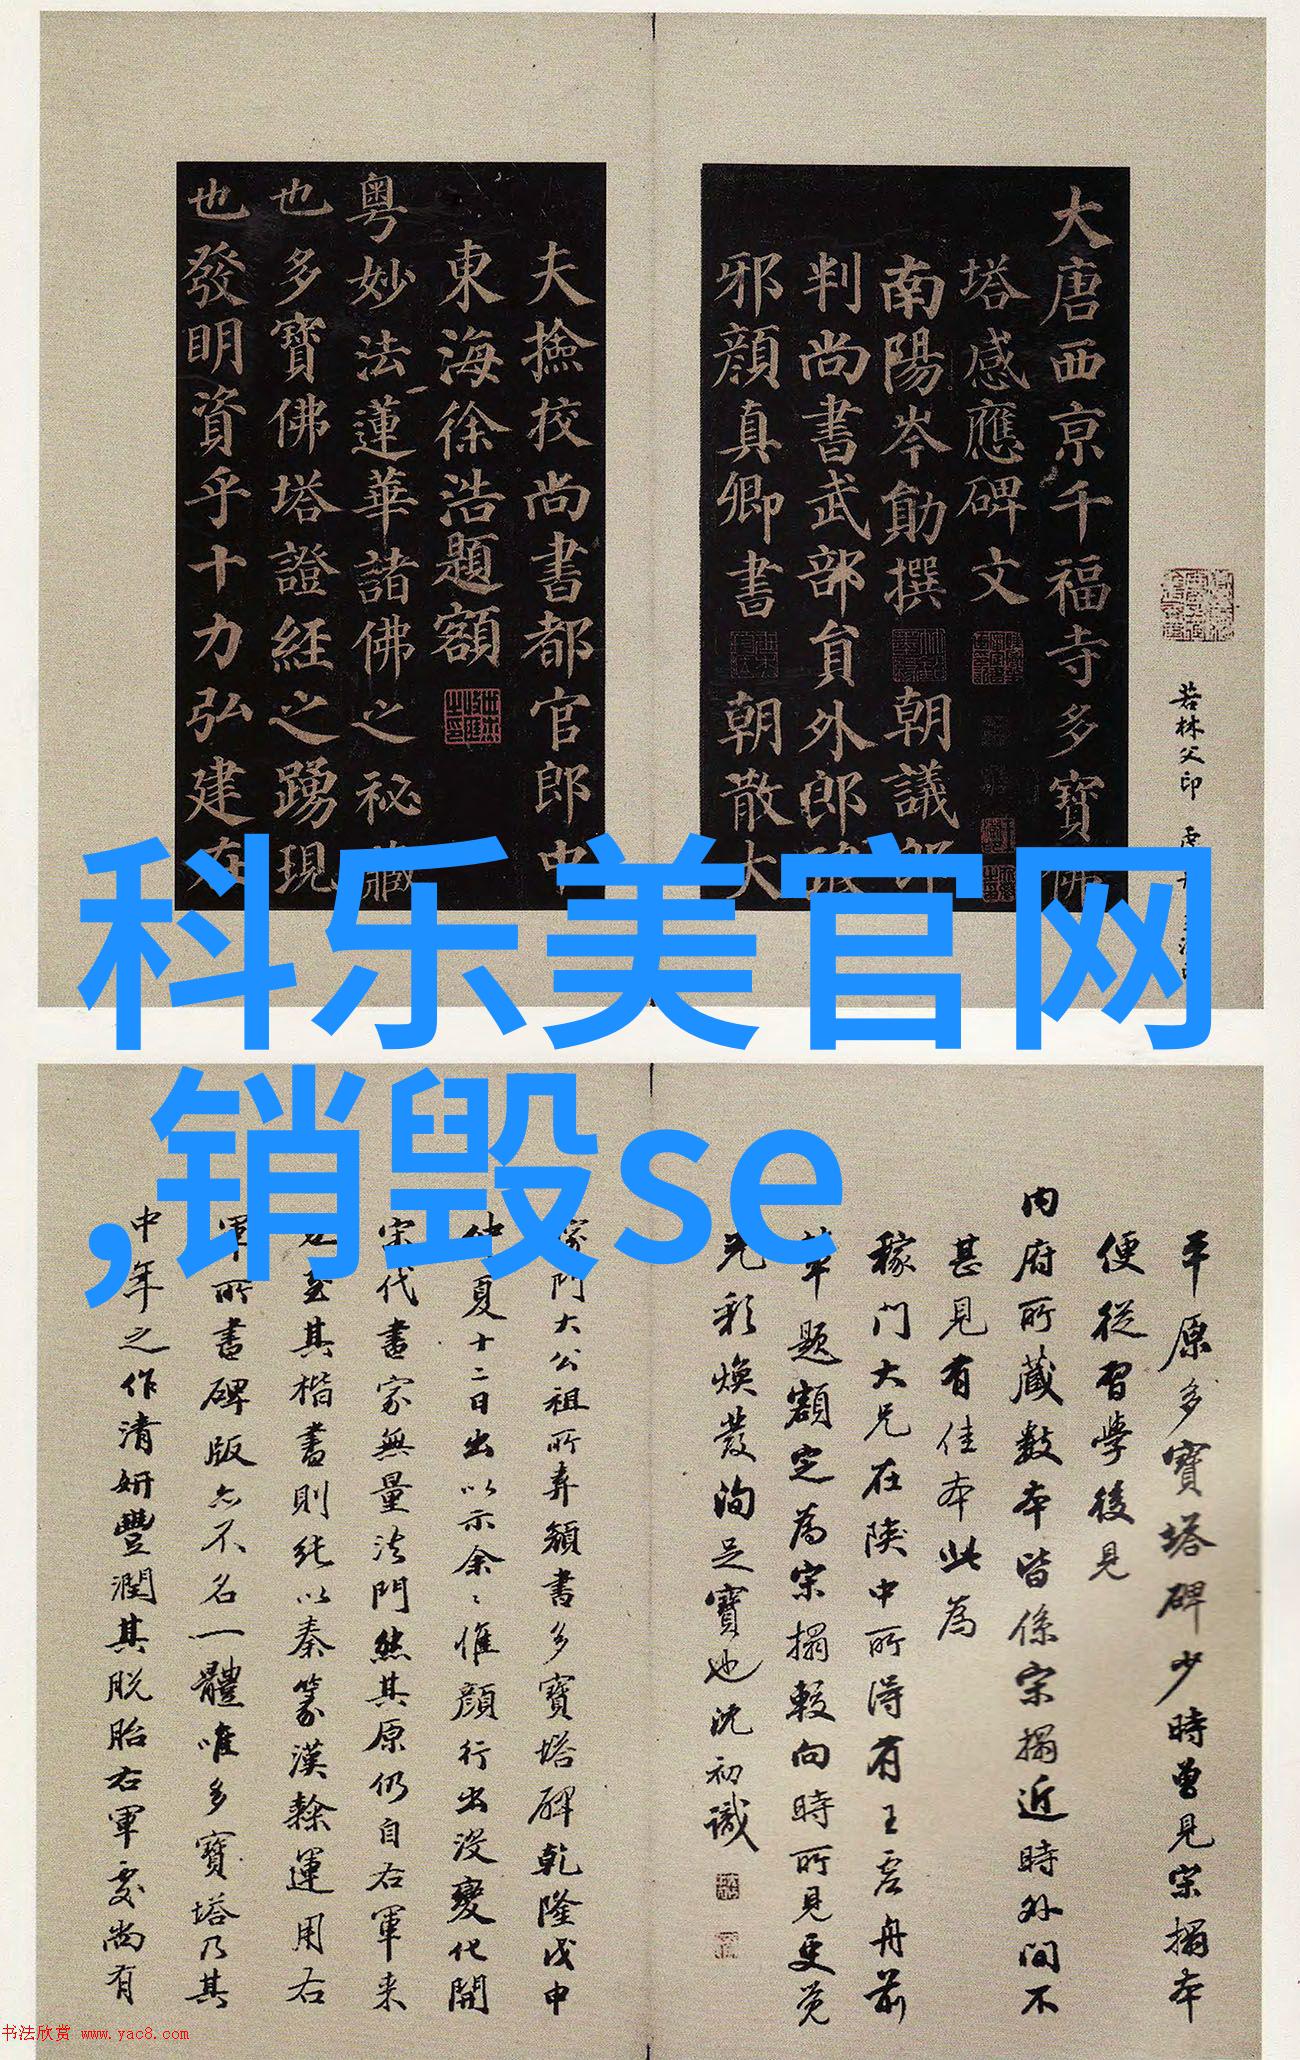 大唐西京千福寺多寶佛
塔感應碑文
南陽岑勛撰
朝議郎
判尚書武部員外郎琅
邪顏真卿書
朝散大
夫撿挍尚書都官郎中
東海徐浩題額
粵妙法蓮華諸佛之祕藏
也多寶佛塔證經之踴現
也發明資乎十力弘建在
若林父印
科乐美官网
,销毁se
平原多寶塔碑少時曾見宋搨本
便從習學後見
內府所藏數本皆係宋搨近時外間不
甚見有佳本此為
稼門大兄在陝中所得有王虛舟前
輩題額定為宋搨較向時所見更覺
光彩煥發洵足寶也沈初識
稼門大公祖所弆顏書多寶塔碑乾隆戊申
仲夏十二日出以示余〻惟顏行出沒變化開
宋代書家無量法門然其原仍自右軍来
至其楷書則純以秦篆漢隸運用右
軍所書碑版亦不名一體唯多寶塔乃其
中年之作清妍豐潤其脫胎右軍處尚有
书法欣赏 www.yac8.com